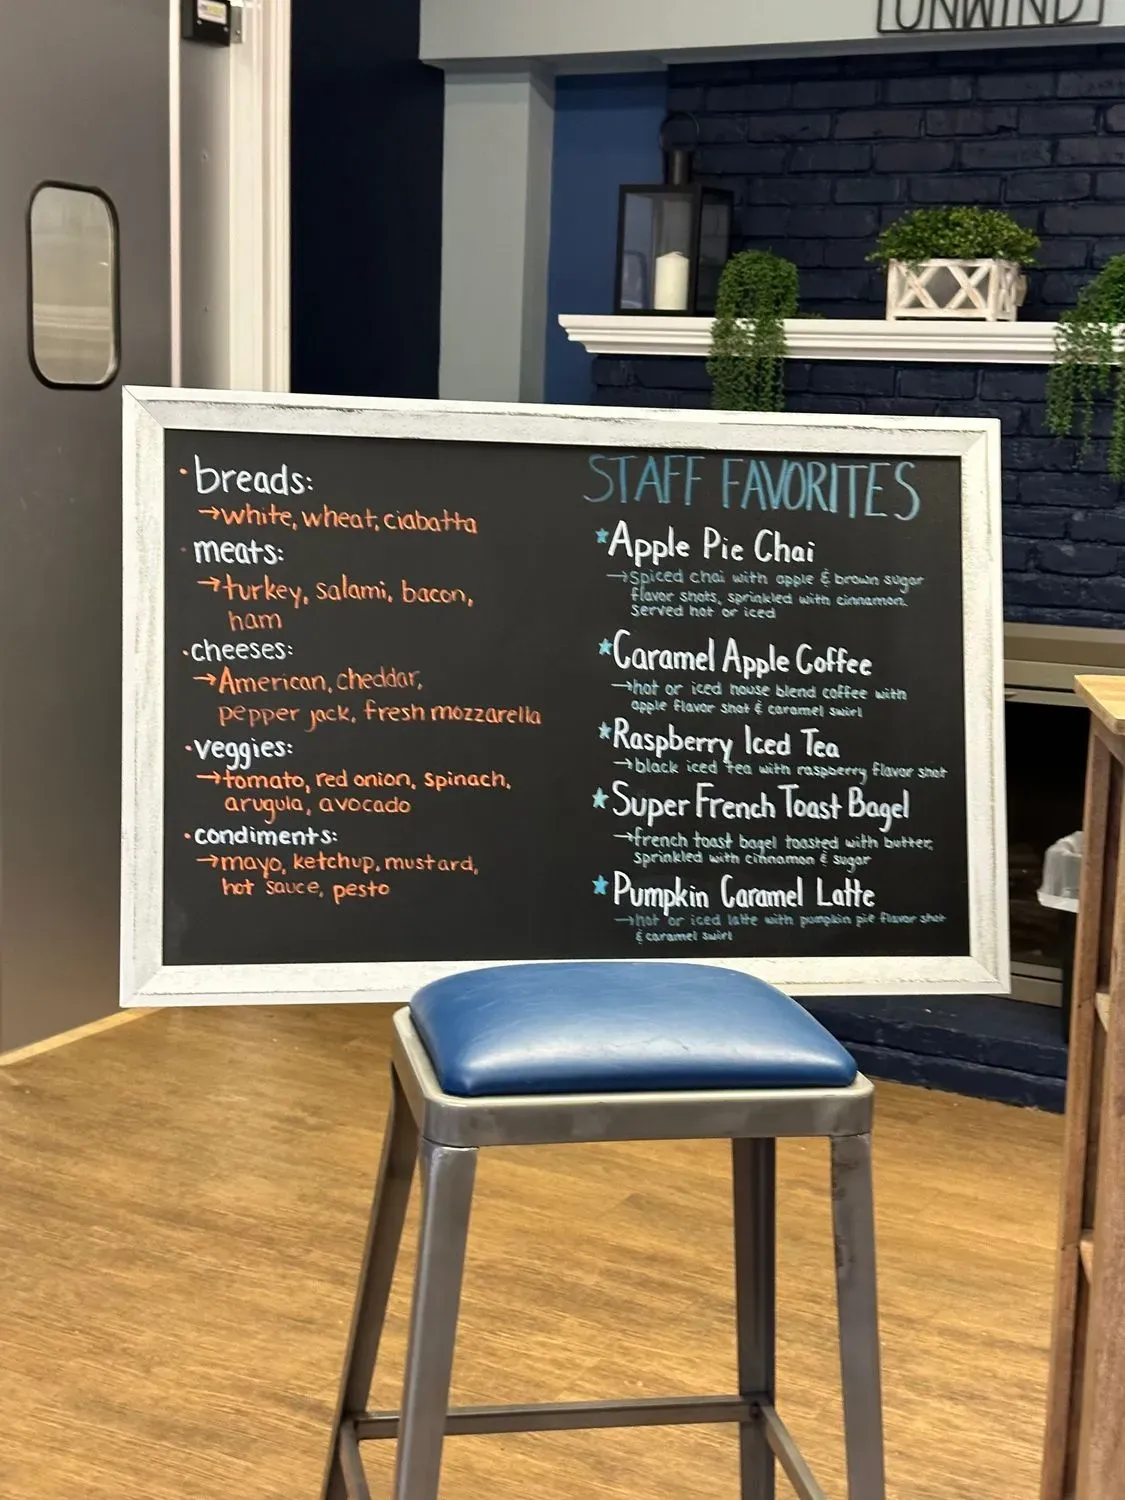 UNWIND
· breads:
→white, wheat, ciabatta
· meats:
→turkey, salami, bacon,
ham
· cheeses:
→American, cheddar,
pepper jack, fresh mozzarella
· veggies:
→tomato, red onion, spinach,
arugula, avocado
· condiments:
→mayo, ketchup, mustard,
hot sauce, pesto
STAFF FAVORITES
★Apple Pie Chai
→spiced chai with apple & brown sugar
flavor shots, sprinkled with cinnamon.
served hot or iced
★Caramel Apple Coffee
→hot or iced house blend coffee with
apple flavor shot & caramel swirl
★Raspberry Iced Tea
→black iced tea with raspberry flavor shot
★Super French Toast Bagel
→french toast bagel toasted with butter,
sprinkled with cinnamon & sugar
★Pumpkin Caramel Latte
→hot or iced latte with pumpkin pie flavor shot
& caramel swirl